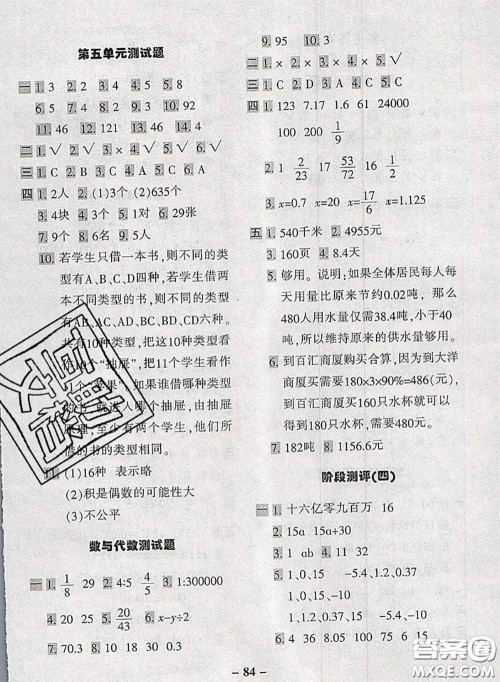 第五单元测试题
一 1. 3 2. 2 3. 4 4. 5 5. 8
6. 5 7. 8 8. 9 9. 3 10. 92
11. 46 12. 121 13. 46 14. 4
二 1. √ 2. √ 3. × 4. √ 5. √
三 1. C 2. A 3. C 4. C 5. A
四 1. 2人 2. (1)3个 (2)635个
3. 4块 4. 3个 5. 1对 6. 29张
7. 9个 8. 6名 9. 5人
10. 若学生只借一本书,则不同的类型
有A、B、C、D四种,若学生借两
本不同类型的书,则不同的类型
有AB、AC、AD、BC、BD、CD六种。
共有10种类型,把这10种类型看
作10个“抽屉”,把11个学生看作
11个“苹果”,如果谁借哪种类型
的书,就进入哪个抽屉,由抽屉
原理,至少有两个学生,他们所
借的书的类型相同。
11. (1)16种 表示略
(2)积是偶数的可能性大
(3)不公平
数与代数测试题
一 1. 1/8 29 2. 4:5 4/5 3. 1:300000
4. 20 25 5. 20/43 6. x-y÷2
7. 70.3 8. 10 18 30 0.3
9. 95 10. 3
二 1. × 2. × 3. × 4. √ 5. √
三 1. C 2. D 3. A 4. C 5. C
四 1. 123 7.17 1.6 61 24000
100 200 1/9
2. 1 2/23 17 53/72 16 1/2
3. x=0.7 x=20 x=17/6 x=1.125
五 1. 540千米 2. 4955元
3. 160页 4. 8.4天
5. 够用。说明:如果全体居民每人每
天用量比原来节约0.02吨,那么
480人用水量仅需38.4吨,小于40
吨,所以维持原来的供水量够用。
6. 到百汇商厦购买合算,因为到大洋
商厦买需要180×3×90%=486(元),
到百汇商厦买160只水杯就可以
得到180只水杯,需要480元。
7. 182吨 8. 1156.6元
阶段测评(四)
一 1. 十六亿零九百万 16
2. 15a 15a÷30
3. 1 ab 4. 11 32
5. 1、0、15 -5.4、1.2、0.37
1、0、15
1、1.2、0.37 -5.4、-10
6. 4 36 8.05 3 25 75
- 84 -
答案圈
MXQE.COM